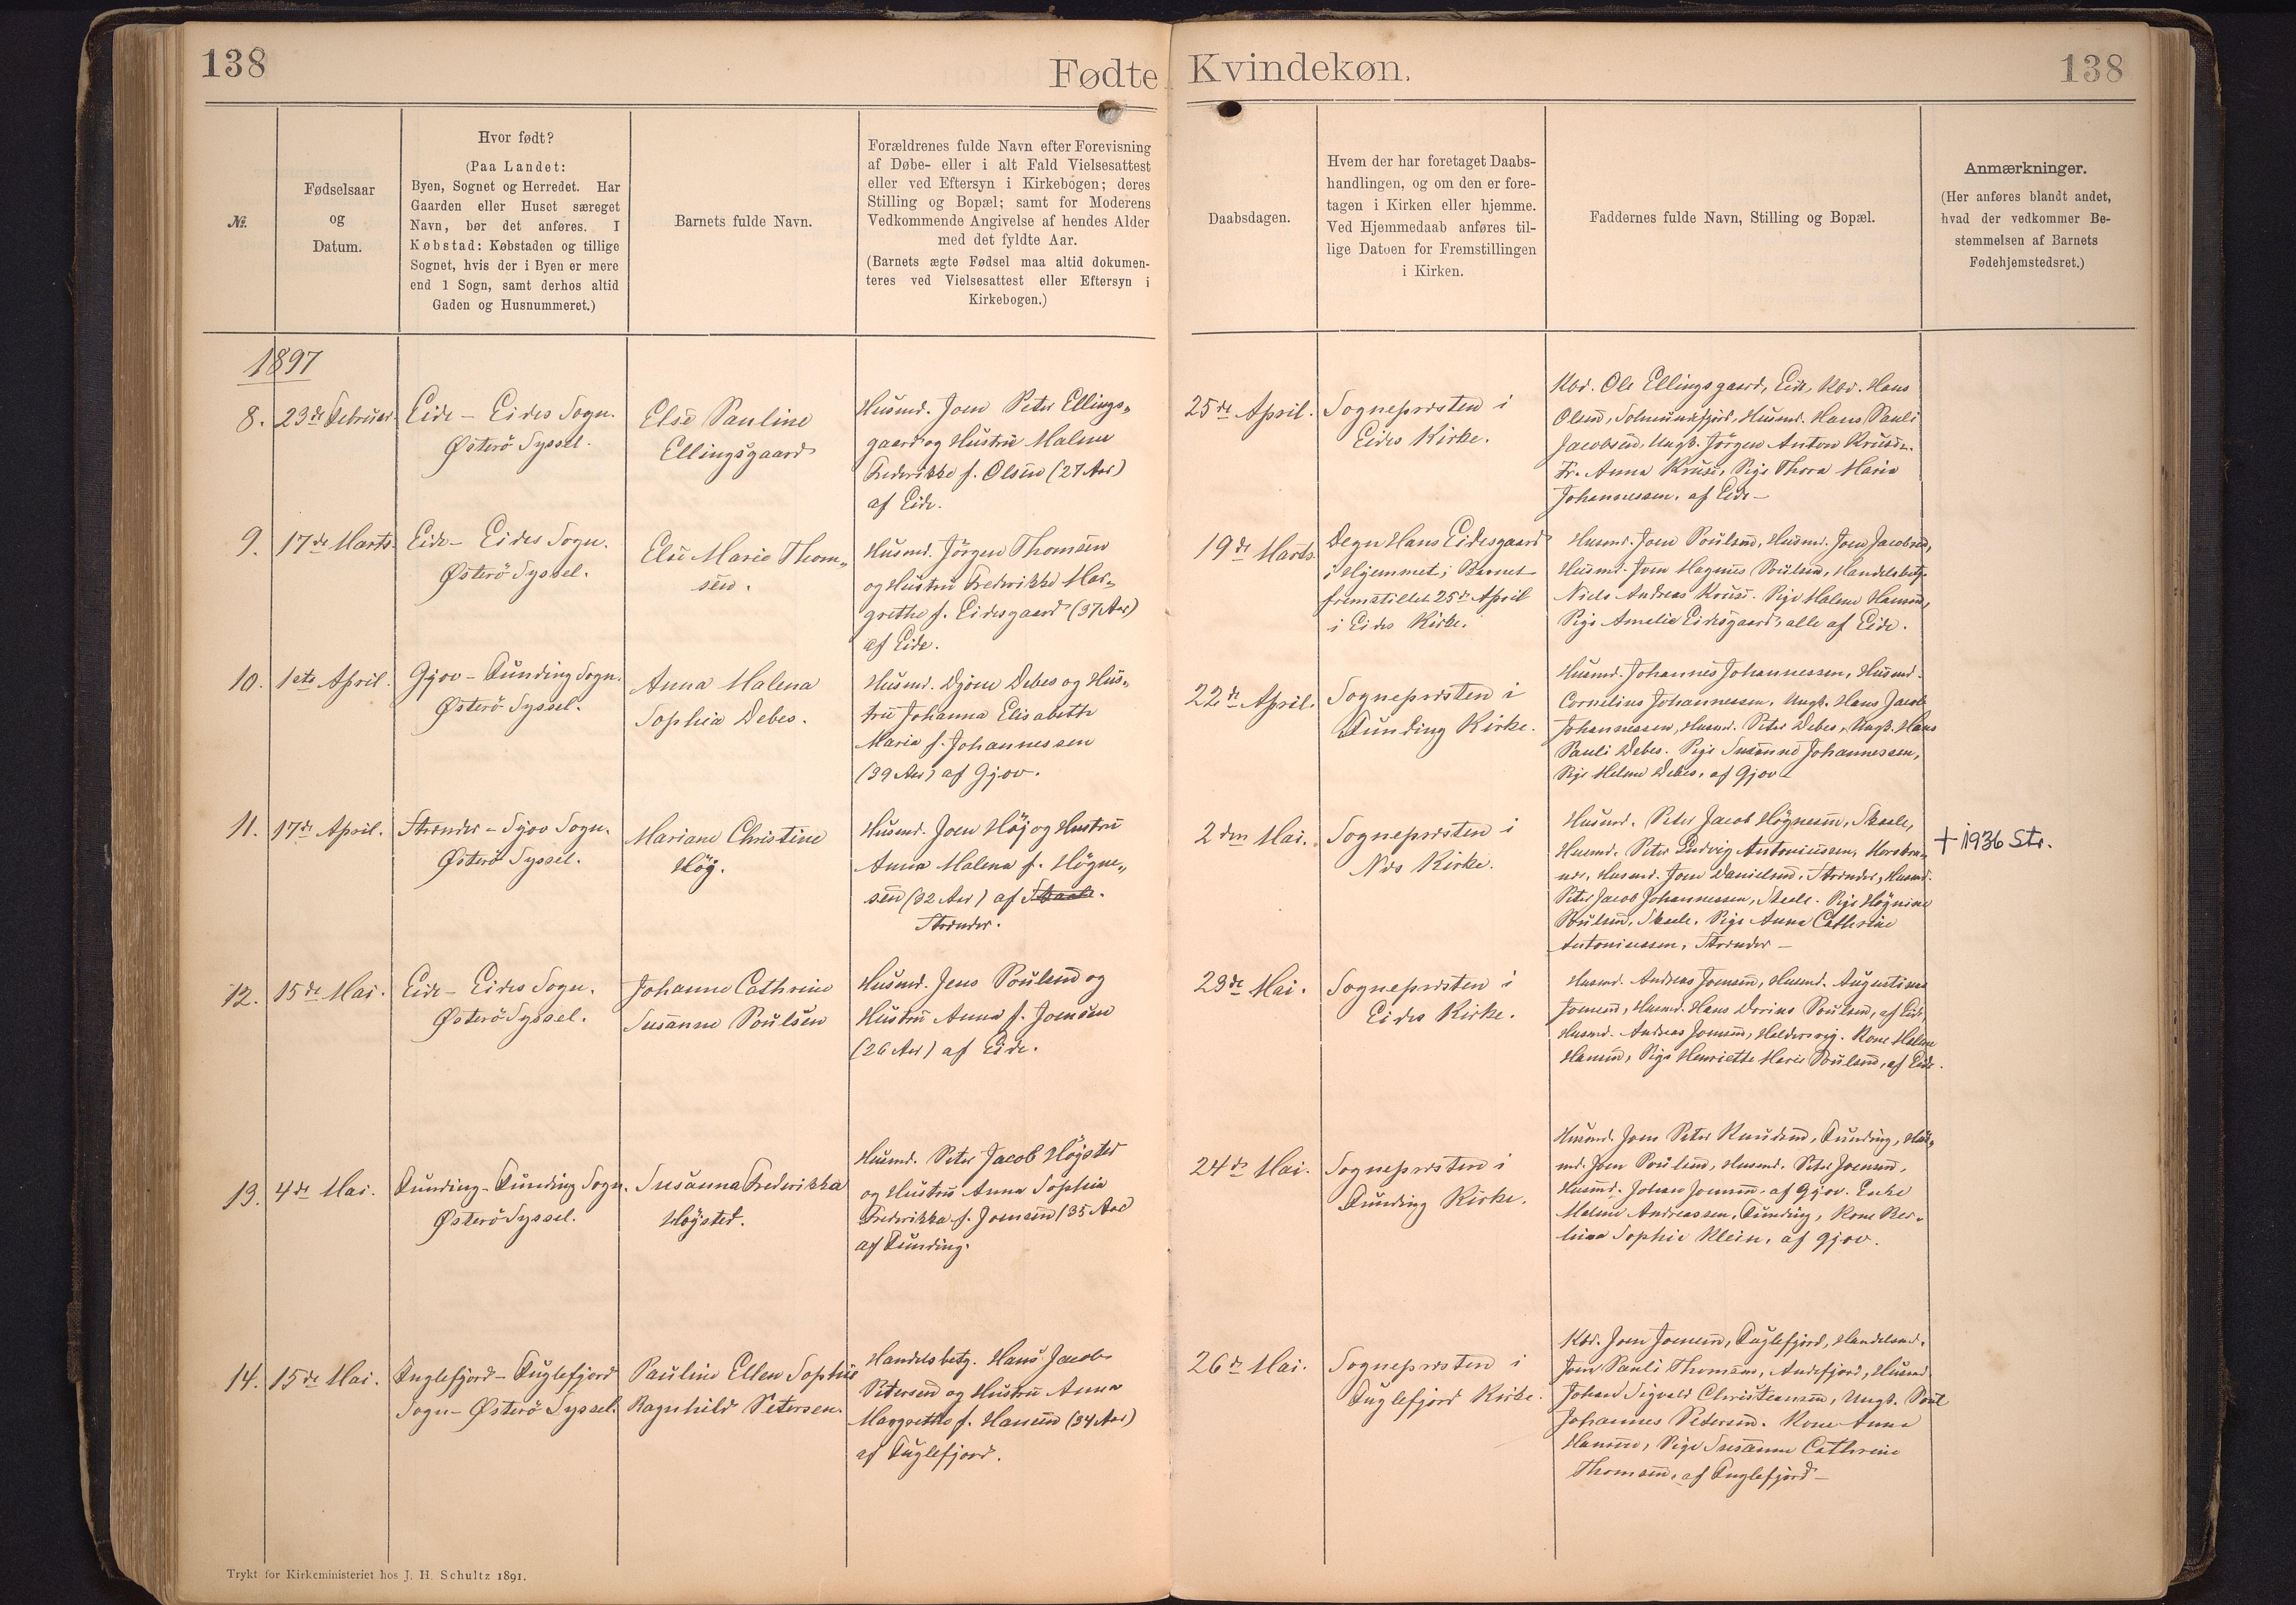 138
Fødte
Kvindekøn.
138
№.
Fødselsaar
og
Datum.
Hvor født?
(Paa Landet:
Byen, Sognet og Herredet. Har
Gaarden eller Huset særeget
Navn, bør det anføres. I
Købstad: Købstaden og tillige
Sognet, hvis der i Byen er mere
end 1 Sogn, samt derhos altid
Gaden og Husnummeret.)
Barnets fulde Navn.
Forældrenes fulde Navn efter Forevisning
af Døbe- eller i alt Fald Vielsesattest
eller ved Eftersyn i Kirkebogen; deres
Stilling og Bopæl; samt for Moderens
Vedkommende Angivelse af hendes Alder
med det fyldte Aar.
(Barnets ægte Fødsel maa altid dokumen-
teres ved Vielsesattest eller Eftersyn i
Kirkebogen.)
Daabsdagen.
Hvem der har foretaget Daabs-
handlingen, og om den er fore-
tagen i Kirken eller hjemme.
Ved Hjemmedaab anføres til-
lige Datoen for Fremstillingen
i Kirken.
Faddernes fulde Navn, Stilling og Bopæl.
Anmærkninger.
(Her anføres blandt andet,
hvad der vedkommer Be-
stemmelsen af Barnets
Fødehjemstedsret.)
1897
8.
23de Februar.
Eide - Eides Sogn.
Østerö Syssel.
Else Pauline
Ellingsgaard
Husmd. Joen Peter Ellings-
gaard og Hustru Malene
Frederikke f. Olsen (27 Aar)
af Eide.
25de April.
Sognepræsten i
Eides Kirke.
Kbd. Ole Ellingsgaard, Eide, Kbd. Hans
Olsen, Solmundefjord, Husmd. Hans Pauli
Jacobsen, Ungk. Jörgen Anton Kruse.
Fr. Anna Kruse, Pige Thora Maria
Johannessen, af Eide -
9.
17de Marts.
Eide - Eides Sogn.
Østerö Syssel.
Else Marie Thom-
sen.
Husmd. Jörgen Thomsen
og Hustru Frederikke Mar-
grethe f. Eidesgaard (37 Aar)
af Eide.
19de Marts
Degn Hans Eidesgaard
i Hjemmet; Barnet
fremstillet 25de April
i Eides Kirke.
Husmd. Joen Poulsen, Husmd. Joen Jacobsen,
Husmd. Joen Magnus Poulsen, Handelsbetj.
Niels Andreas Kruse. Pige Malene Hansen,
Pige Amalie Eidesgaard, alle af Eide.
10.
1ste April.
Gjov - Funding Sogn.
Østerö Syssel.
Anna Malena
Sophia Debes.
Husmd. Djone Debes og Hus-
tru Johanna Elisabeth
Maria f. Johannessen
(39 Aar) af Gjov.
22de April.
Sognepræsten i
Funding Kirke.
Husmd. Johannes Johannessen, Husmd.
Cornelius Johannessen, Ungk. Hans Jacob
Johannessen, Husmd. Peter Debes, Ungk. Hans
Pauli Debes. Pige Susanne Johannessen,
Pige Helene Debes, af Gjov -
11.
17de April.
Strender - Sjov Sogn.
Østerö Syssel.
Mariane Christine
Höj.
Husmd. Joen Höj og Hustru
Anna Malena f. Högne-
sen (32 Aar) af Skaale.
Strender.
2den Mai.
Sognepræsten i
Næs Kirke.
Husmd. Peter Jacob Högnesen, Skaale,
Husmd. Peter Ludvig Antoniussen,
Husmd. Joen Danielsen, Strender, Husmd.
Peter Jacob Johannessen, Skaale. Pige Högnine
Poulsen, Skaale, Pige Anna Cathrine
Antoniussen, Strender -
+ 1936 Str.
12.
15de Mai.
Eide - Eides Sogn.
Østerö Syssel.
Johanne Cathrine
Susanne Poulsen
Husmd. Jens Poulsen og
Hustru Anna f. Joensen
(26 Aar) af Eide.
23de Mai.
Sognepræsten i
Eides Kirke.
Husmd. Andreas Joensen, Husmd. Augustinus
Joensen, Husmd. Hans Dorius Poulsen, af Eide,
Husmd. Andreas Joensen, Haldersvig. Kone Malene
Hansen, Pige Henriette Marie Poulsen, af Eide.
13.
4de Mai.
Funding - Funding Sogn.
Østerö Syssel.
Susanna Frederikka
Höjsted.
Husmd. Peter Jacob Höjsted
og Hustru Anna Sophia
Frederikka f. Joensen (35 Aar)
af Funding.
24de Mai.
Sognepræsten i
Funding Kirke.
Husmd. Joen Peter Knudsen, Funding, Hus-
md. Joen Poulsen, Husmd. Peter Joensen,
Husmd. Johan Joensen, af Gjov. Enke
Malene Andreassen, Funding, Kone Ber-
lina Sophie Klein, af Gjov.
14.
15de Mai.
Fuglefjord - Fuglefjord
Sogn - Østerö Syssel.
Pauline Ellen Sophie
Ragnhild Petersen.
Handelsbetj. Hans Jacob
Petersen og Hustru Anna
Margrethe f. Hansen (34 Aar)
af Fuglefjord.
26de Mai.
Sognepræsten i
Fuglefjord Kirke.
Kbd. Joen Joensen, Fuglefjord, Handelsmd.
Joen Pauli Thomsen, Andefjord, Husmd.
Johan Sigvald Christiansen, Ungk. Poul
Johannes Petersen. Kone Anna
Hansen, Pige Susanne Cathrine
Thomsen, af Fuglefjord -
Trykt for Kirkeministeriet hos J. H. Schultz 1891.